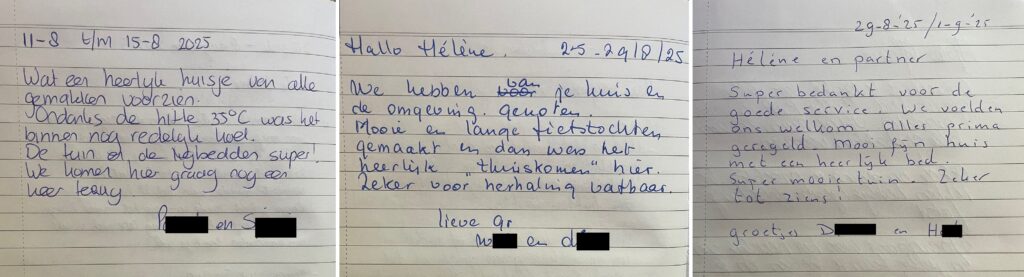 11-8 t/m 15-8 2025
Wat een heerlijk huisje van alle
gemakken voorzien.
Ondanks de hitte 35°C was het
binnen nog redelijk koel.
De tuin en de ligbedden super!
We komen hier graag nog een
keer terug
en S
Hallo Hélène. 25-29/8/25
We hebben van je huis en
de omgeving genoten.
Mooie en lange fietstochten
gemaakt en dan was het
heerlijk "thuiskomen" hier.
Zeker voor herhaling vatbaar.
lieve gr
en
29-8-'25 / 1-9-'25
Hélène en partner
Super bedankt voor de
goede service. We voelden
ons welkom. Alles prima
geregeld. Mooi fijn huis
met een heerlijk bed.
Super mooie tuin. Zeker
tot ziens!
groetjes D en H